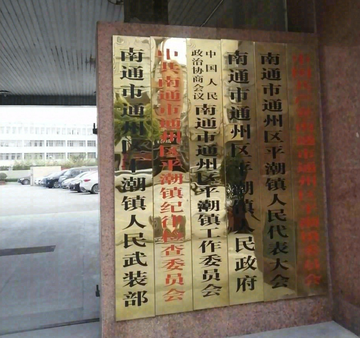 中共南通市通州区平潮镇委员会
南通市通州区平潮镇人民代表大会
南通市通州区平潮镇人民政府
中国人民
政治协商会议
南通市通州区平潮镇工作委员会
中共南通市通州区平潮镇纪律检查委员会
南通市通州区平潮镇人民武装部